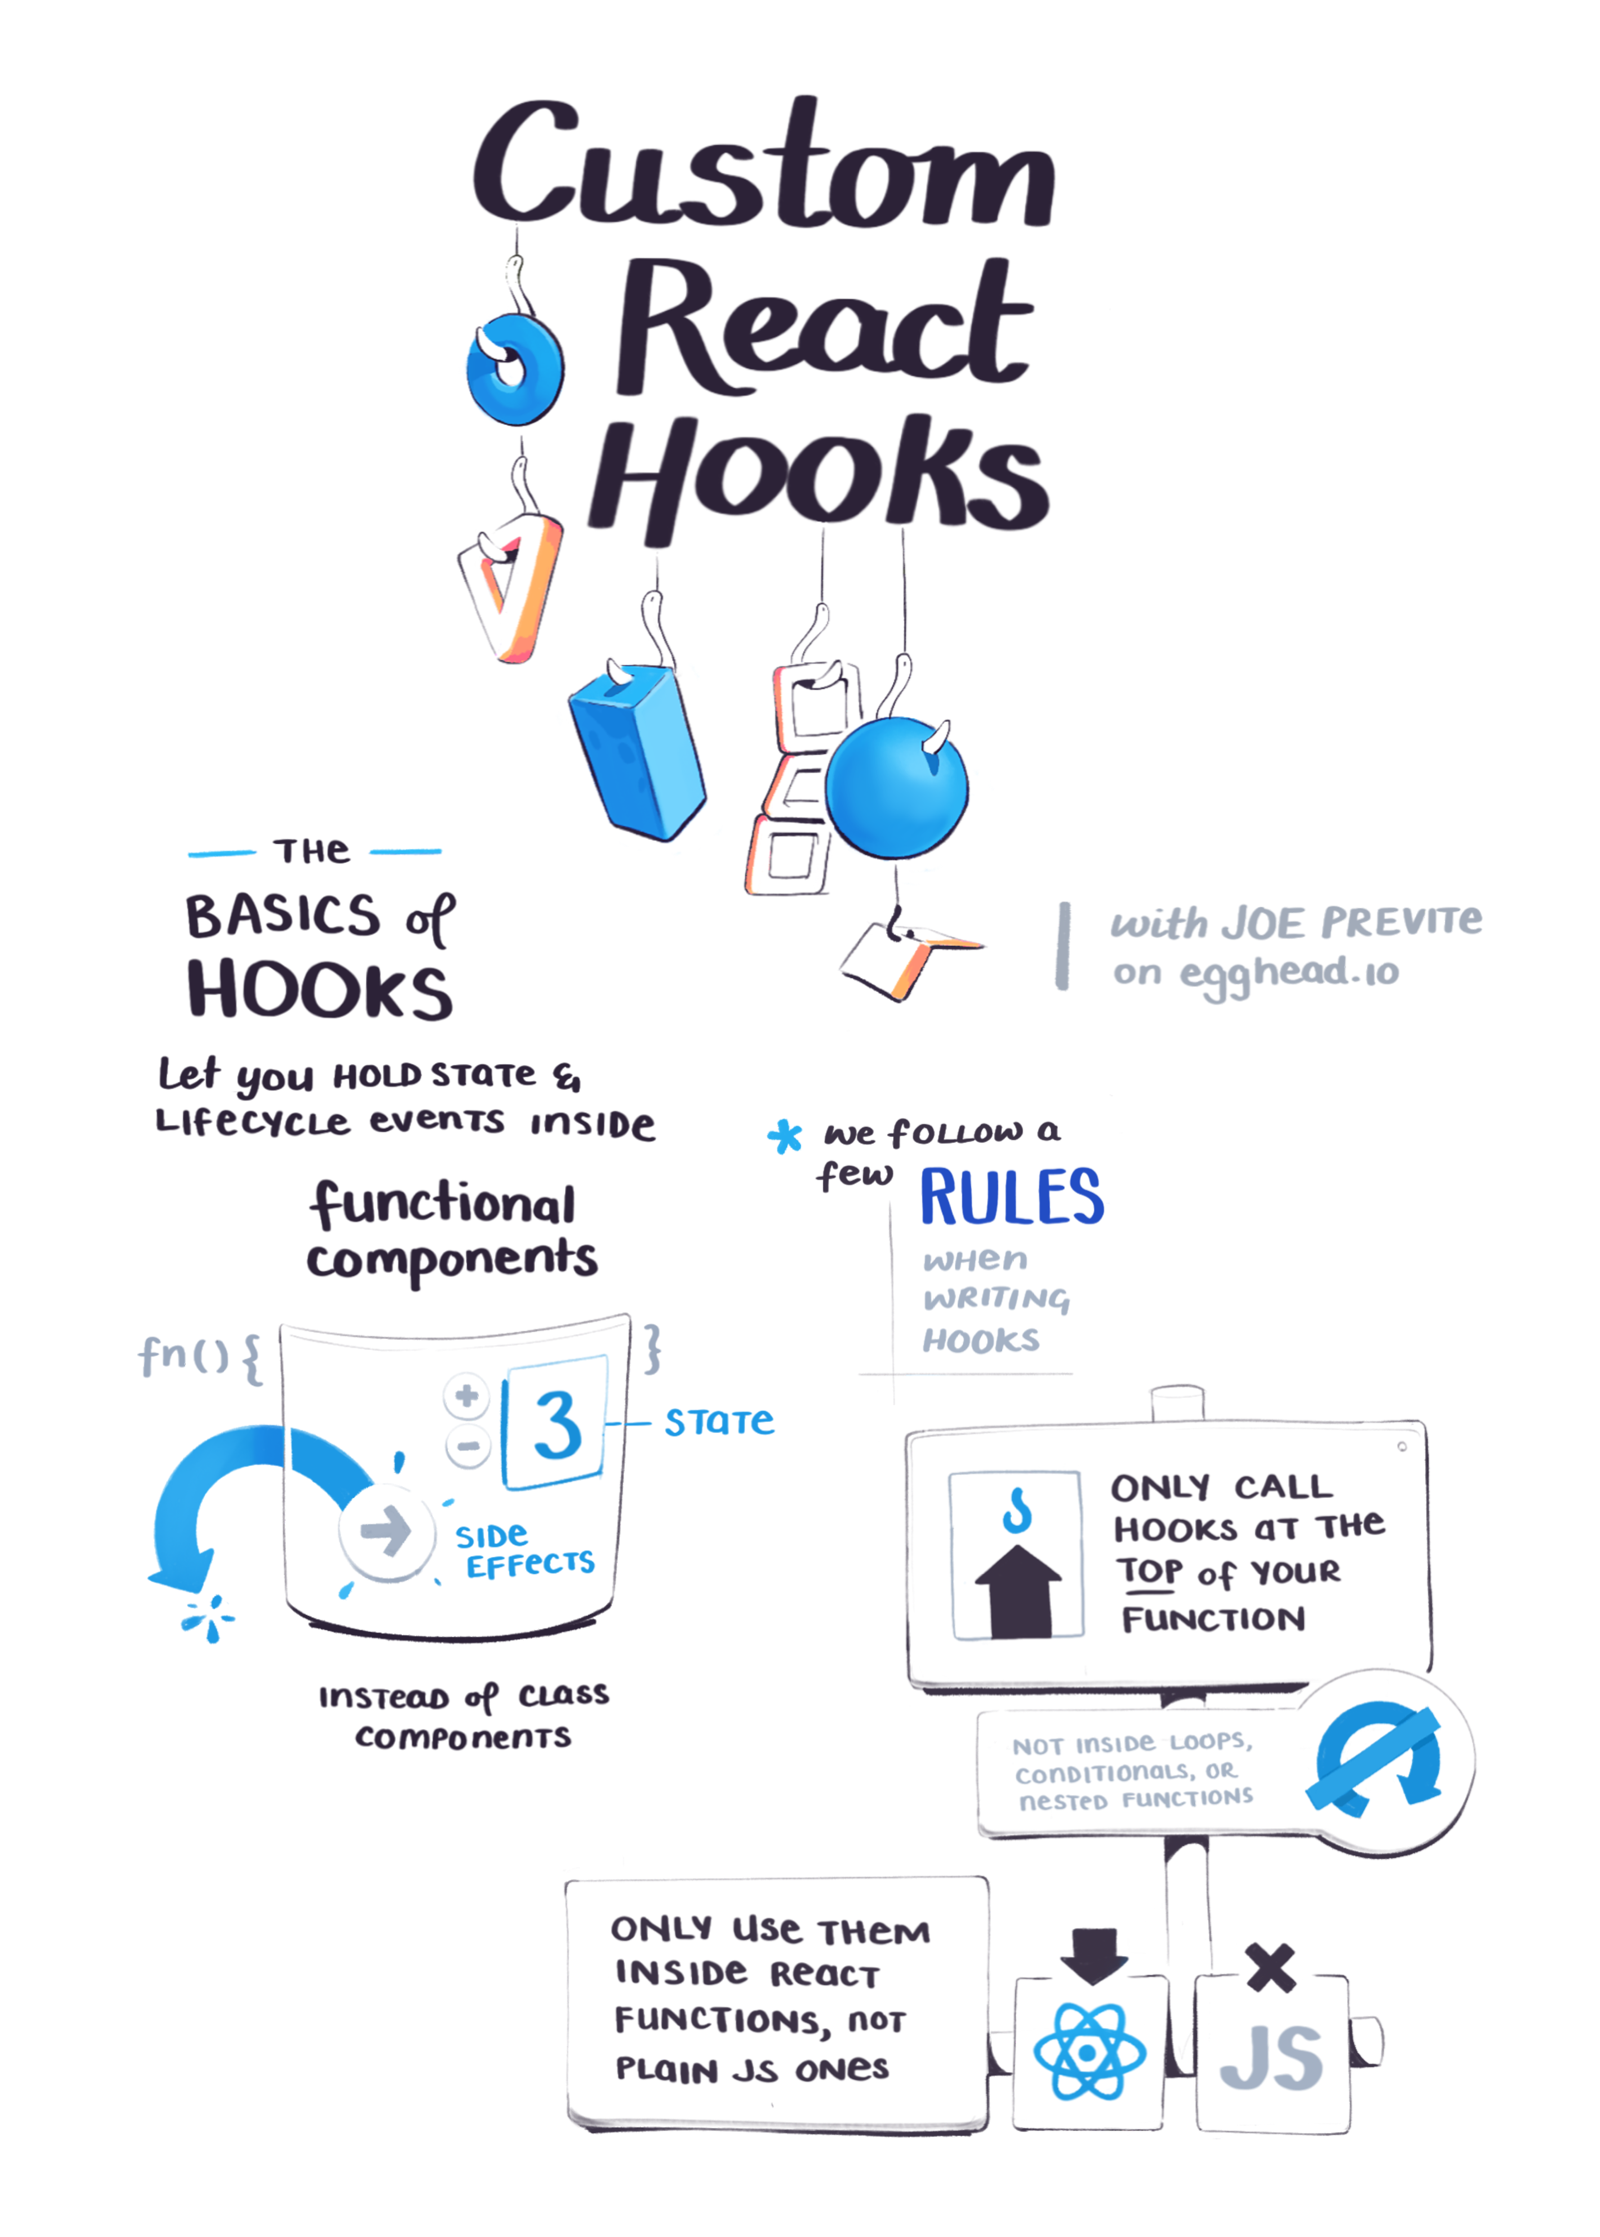 Custom
React
Hooks
with JOE PREVITE
on egghead.io
THE
BASICS of
HOOKS
Let you HOLD STATE &
LIFECYCLE EVENTS INSIDE
functional
components
fn() { }
+
-
3
STATE
SIDE
EFFECTS
INSTEAD of CLASS
COMPONENTS
* we follow a
few RULES
WHEN
WRITING
HOOKS
ONLY CALL
HOOKS AT THE
TOP of YOUR
FUNCTION
NOT INSIDE LOOPS,
CONDITIONALS, OR
NESTED FUNCTIONS
ONLY USE THEM
INSIDE REACT
FUNCTIONS, NOT
PLAIN JS ONES
JS